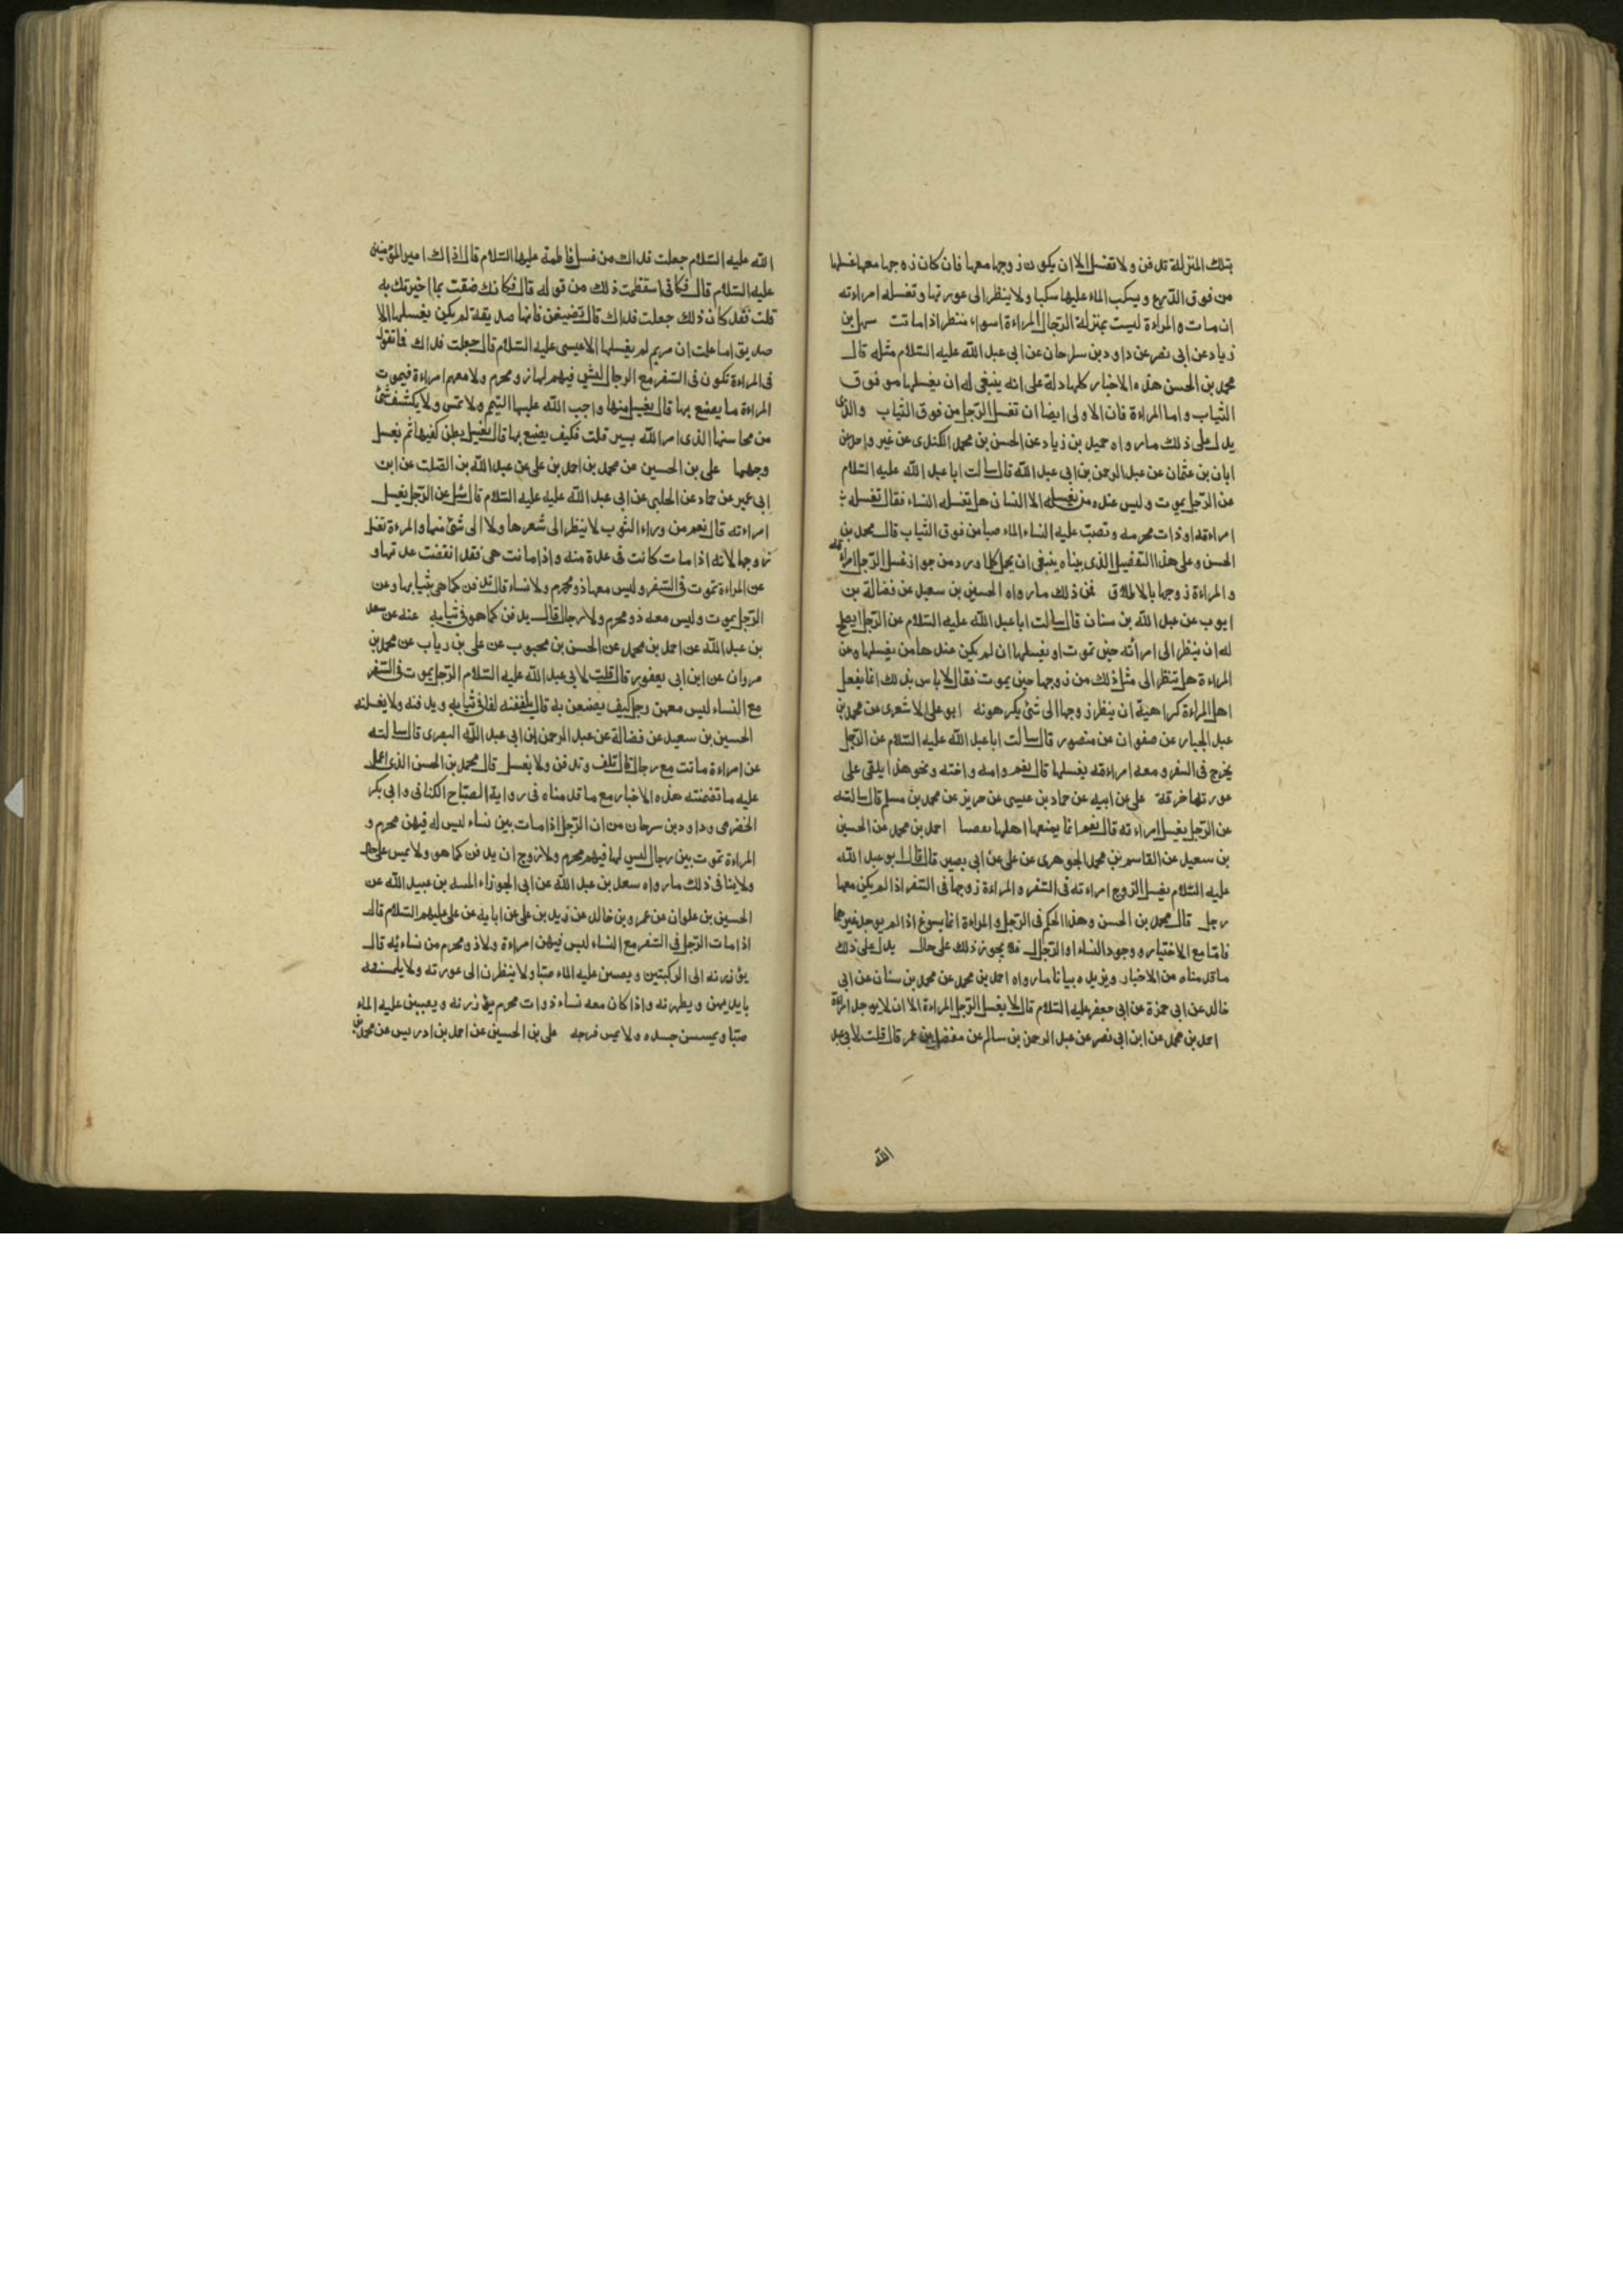 بتلك المنزلة تدفن ولا تغسل الا ان يكون زوجها معها فان كان زوجها معها غسلها
من فوق الدرع ويسكب الماء عليها سكبا ولا ينظر الى عورتها وتغسله امراءته
ان مات والمراءة ليست بمنزلة الرجال المراءة اسواء منظرا اذا ماتت سهل بن
زياد عن ابى نصر عن داود بن سرحان عن ابى عبد الله عليه السلام مثله قال
محمد بن الحسن هذه الاخبار كلها دلة على انه ينبغى له ان يغسلها من فوق
الثياب واما المراءة فان الاولى ايضا ان تغسل الرجل من فوق الثياب والذى
يدل على ذلك ما رواه حميد بن زياد عن الحسن بن محمد الكندى عن غير واحد عن
ابان بن عثمان عن عبد الرحمن بن ابى عبد الله قال سالت ابا عبد الله عليه السلام
عن الرجل يموت وليس عنده من يغسله الا النساء هل تغسله النساء فقال تغسله
امراءته او ذات محرمه وتصب عليه النساء الماء صبا من فوق الثياب قال محمد بن
الحسن وعلى هذا التفصيل الذى بيناه ينبغى ان يحمل كلما ورد من جواز غسل الرجل امراءته
والمراءة زوجها بالاطلاق فمن ذلك ما رواه الحسين بن سعيد عن فضالة بن
ايوب عن عبد الله بن سنان قال سالت ابا عبد الله عليه السلام عن الرجل ايصلح
له ان ينظر الى امرأته حين تموت او يغسلها ان لم يكن عندها من يغسلها وعن
المراءة هل تنظر الى مثل ذلك من زوجها حين يموت فقال لا باس بذلك انما يفعل
اهل المراءة كراهية ان ينظر زوجها الى شئ يكرهونه ابو على الاشعرى عن محمد بن
عبد الجبار عن صفوان عن منصور قال سالت ابا عبد الله عليه السلام عن الرجل
يخرج فى السفر ومعه امراءته يغسلها قال نعم وامه واخته ونحو هذا يلقى على
عورتها خرقة على عن ابيه عن حماد بن عيسى عن حريز عن محمد بن مسلم قال سالته
عن الرجل يغسل امراءته قال نعم انما يمنعها اهلها تعصبا احمد بن محمد عن الحسين
بن سعيد عن القاسم بن محمد الجوهرى عن على عن ابى بصير قال قال ابو عبد الله
عليه السلام يغسل الزوج امراءته فى السفر والمراءة زوجها فى السفر اذا لم يكن معها
رجل قال محمد بن الحسن وهذا الحكم فى الرجل والمراءة انما يسوغ اذا لم يوجد غيرهما
فاما مع الاختيار ووجود النساء او الرجال فلا يجوز ذلك على حال يدل على ذلك
ما قدمناه من الاخبار ويزيده بيانا ما رواه احمد بن محمد عن محمد بن سنان عن ابى
خالد عن ابى حمزة عن ابى جعفر عليه السلام قال لا يغسل الرجل المراءة الا ان لا يوجد امراءة
احمد بن محمد عن ابن ابى نصر عن عبد الرحمن بن سالم عن مفضل بن عمر قال قلت لابى عبد
الله
الله عليه السلام جعلت فداك من غسل فاطمة عليها السلام قال ذاك امير المؤمنين
عليه السلام قال فكانى استفظعت ذلك من قوله قال فكانك ضقت بما اخبرتك به
قلت فقد كان ذلك جعلت فداك قال لا تضيقن فانها صديقة لم يكن يغسلها الا
صديق اما علمت ان مريم لم يغسلها الا عيسى عليه السلام قال جعلت فداك فما تقول
فى المراءة تكون فى السفر مع الرجال ليس فيهم لها ذو محرم ولا معهم امراءة فيموت
المراءة ما يصنع بها قال يغسل منها ما وجب الله عليها التيمم ولا تمس ولا يكشف شئ
من محاسنها الذى امر الله بستر قلت فكيف يصنع بها قال يغسل بطن كفيها ثم يغسل
وجهها على بن الحسين عن محمد بن احمد بن على عن عبد الله بن الصلت عن ابن
ابى عمير عن حماد عن الحلبى عن ابى عبد الله عليه عليه السلام قال سئل عن الرجل يغسل
امراءته قال نعم من وراء الثوب لا ينظر الى شعرها ولا الى شئ منها والمرءة تغسل
زوجها لانه اذا مات كانت فى عدة منه واذا ماتت هى فقد انقضت عدتها و
عن المراءة تموت فى السفر وليس معها ذو محرم ولا نساء قال تدفن كما هى بثيابها وعن
الرجل يموت وليس معه ذو محرم ولا رجال قال يدفن كما هو فى ثيابه عنه عن سعد
بن عبد الله عن احمد بن محمد عن الحسن بن محبوب عن على بن رياب عن محمد بن
مروان عن ابن ابى يعفور قال قلت لابى عبد الله عليه السلام الرجل يموت فى السفر
مع النساء ليس معهن رجل كيف يصنعن به قال يلففنه لفا فى ثيابه ويدفنه ولا يغسلنه
الحسين بن سعيد عن فضالة عن عبد الرحمن بن ابى عبد الله البصرى قال سالته
عن امراءة ماتت مع رجال قال تلف وتدفن ولا يغسل قال محمد بن الحسن الذى اعمل
عليه ما تضمنته هذه الاخبار مع ما قدمناه فى رواية الصباح الكنانى وابى بكر
الحضرمى وداود بن سرحان من ان الرجل اذا مات بين نساء ليس له فيهن محرم و
المراءة تموت بين رجال ليس لها فيهم محرم ولا زوج ان يدفن كما هو ولا يمس على حال
ولا ينافى ذلك ما رواه سعد بن عبد الله عن ابى الجوزاء المنبه بن عبيد الله عن
الحسين بن علوان عن عمرو بن خالد عن زيد بن على عن ابايه عن على عليهم السلام قال
اذا مات الرجل فى السفر مع النساء ليس فيهن امراءة ولا ذو محرم من نسائه قال
يؤزرنه الى الركبتين ويصببن عليه الماء صبا ولا ينظرن الى عورته ولا يلمسنه
بايديهن ويطهرنه واذا كان معه نساء ذوات محرم يؤزرنه ويصببن عليه الماء
صبا ويمسسن جسده ولا يمس فرجه على بن الحسين عن احمد بن ادريس عن محمد بن